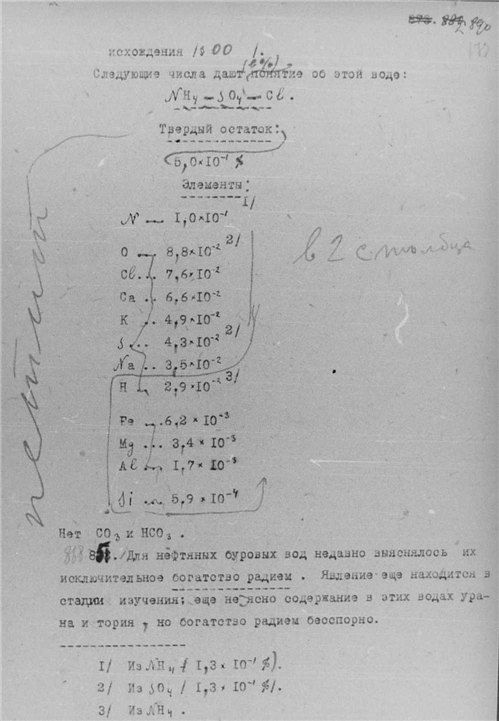 890
исхождения 1800
Следующие числа дают (в %) понятие об этой воде:
NH₄ – SO₄ – Cl.
Твердый остаток:
5,0×10⁻¹ %
Элементы:
N — 1,0×10⁻¹ 1/
O — 8,8×10⁻² 2/
Cl... 7,6×10⁻²
Ca .. 6,6×10⁻²
K .. 4,9×10⁻²
S... 4,3×10⁻² 2/
Na .. 3,5×10⁻²
H .. 2,9×10⁻² 3/
Fe —.6,2×10⁻³
Mg ... 3,4×10⁻³
Al — 1,7×10⁻³
Si — 5,9×10⁻⁴
в 2 столбца
петит
Нет CO₃ и HCO₃.
Для нефтяных буровых вод недавно выяснялось их
исключительное богатство радием. Явление еще находится в
стадии изучения: еще не ясно содержание в этих водах ура-
на и тория, но богатство радием бесспорно.
1/ Из NH₄ / 1,3×10⁻¹ %).
2/ Из SO₄ / 1,3×10⁻¹ %/.
3/ Из NH₄.